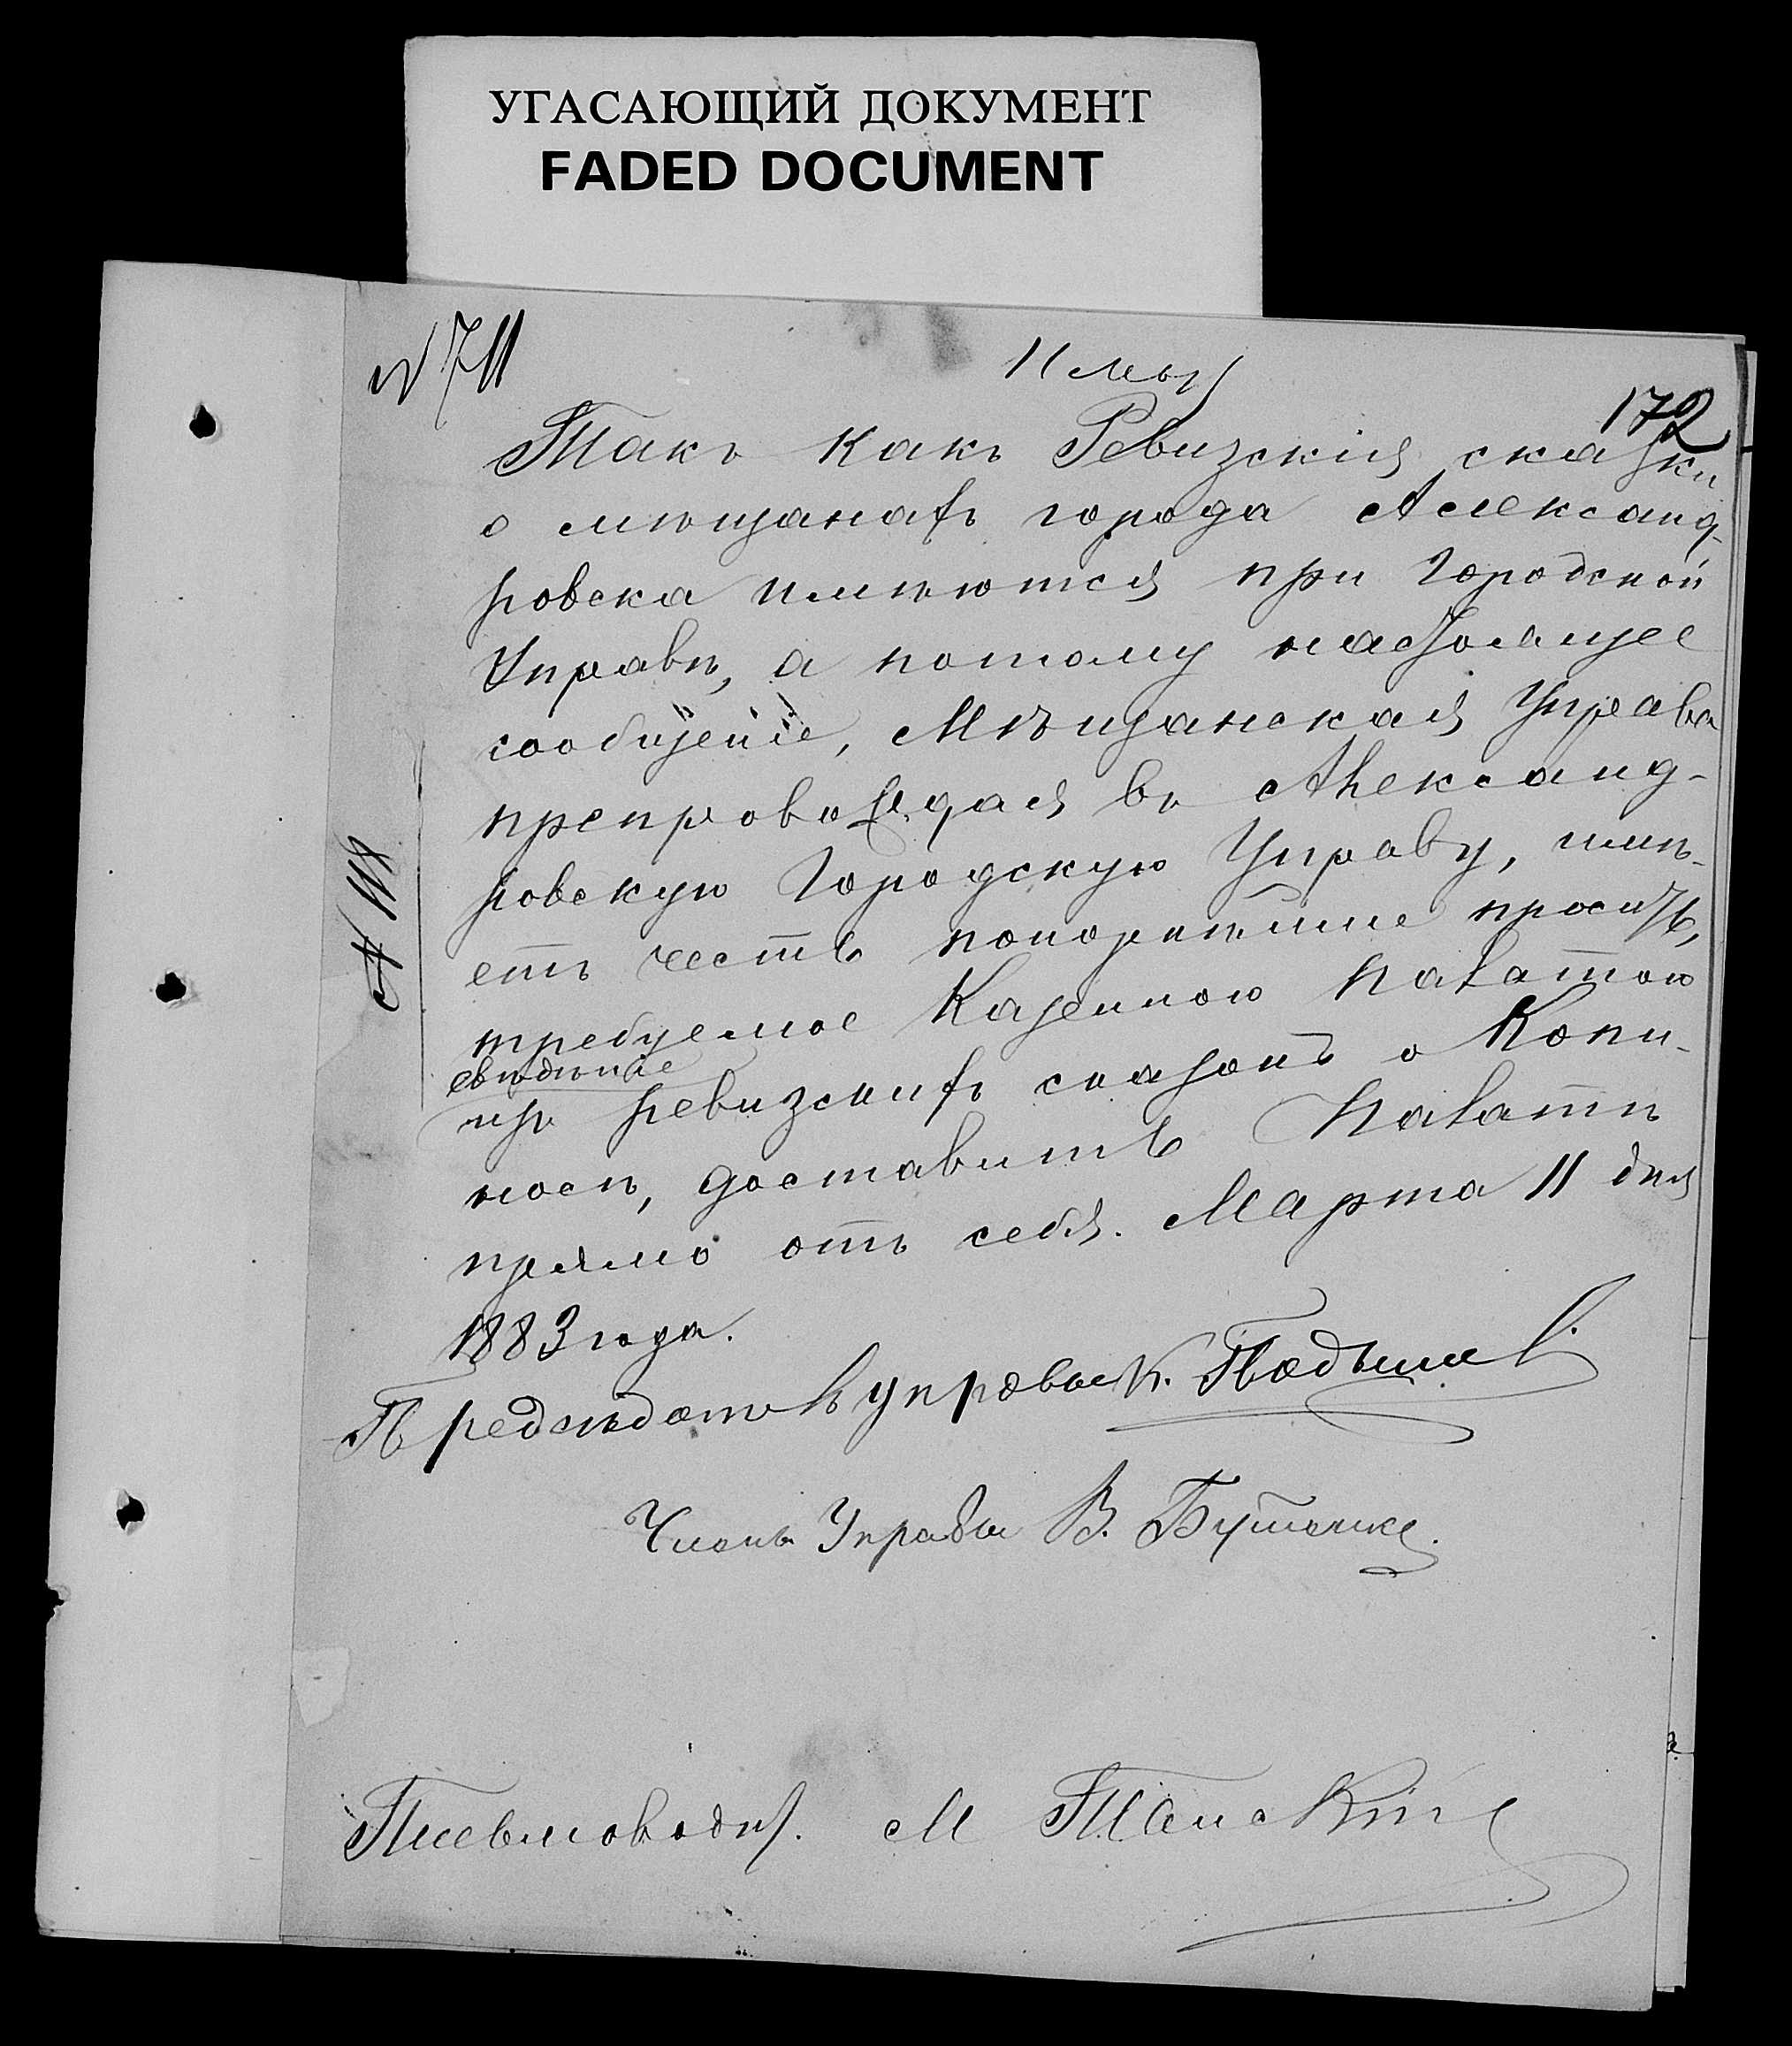 УГАСАЮЩИЙ ДОКУМЕНТ
FADED DOCUMENT
№ 711
11 мар
172
Такъ какъ Ревизскія сказки
о мѣщанахъ города Александ-
ровска имѣются при Городской
Управѣ, а потому настоящее
сообщеніе, Мѣщанская Управа
препровождая въ Александ-
ровскую Городскую Управу, имѣ-
етъ честь покорнѣйше просить,
требуемое Казенною Палатою
свѣдѣніе
изъ ревизскихъ сказокъ о Копи-
носѣ, доставить Палатѣ
прямо отъ себя. Марта 11 дня
1883 года.
Предсѣдатель управы К.
Членъ Управы В. Бутенке
Письмовод.
М